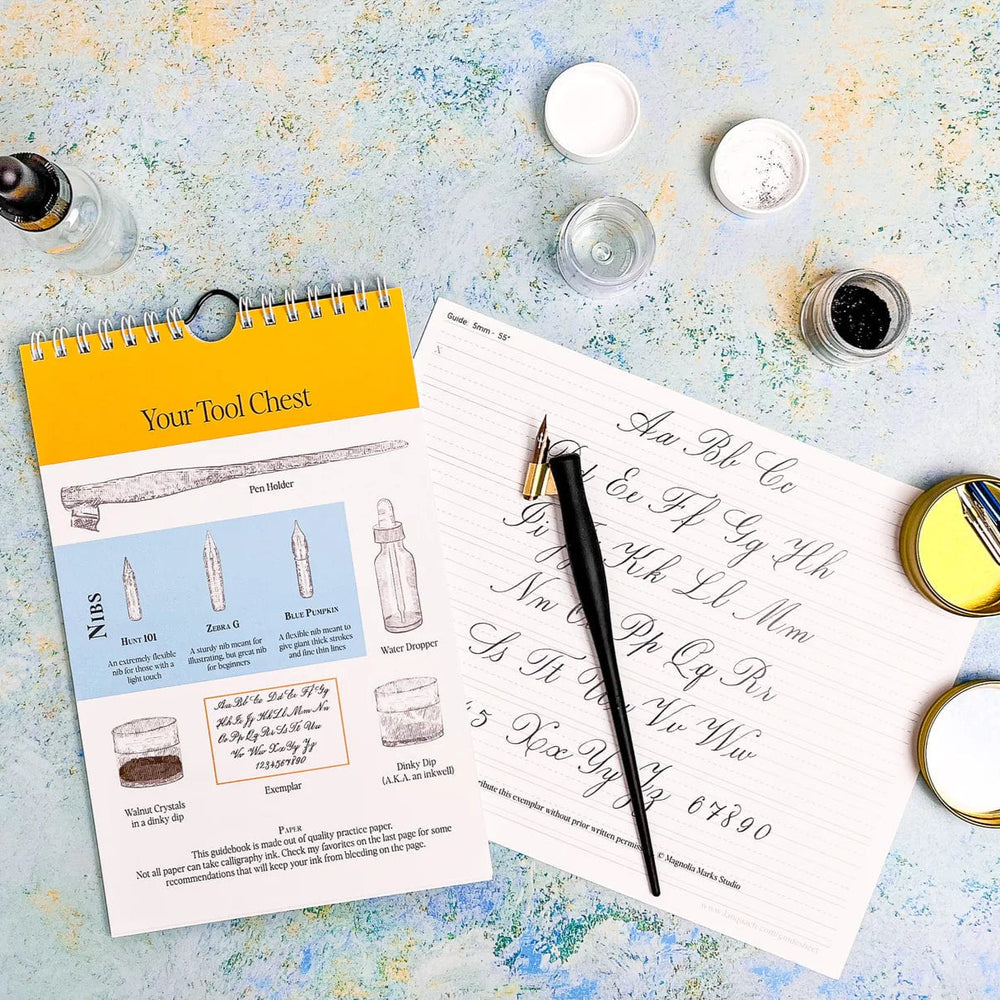 Your Tool Chest
Pen Holder
NIBS
HUNT 101
An extremely flexible
nib for those with a
light touch
ZEBRA G
A sturdy nib meant for
illustrating, but great nib
for beginners
BLUE PUMPKIN
A flexible nib meant to
give giant thick strokes
and fine thin lines
Water Dropper
Walnut Crystals
in a dinky dip
Aa Bb Cc Dd Ee Ff Gg
Hh Ii Jj Kk Ll Mm Nn
Oo Pp Qq Rr Ss Tt Uu
Vv Ww Xx Yy Zz
1234567890
Exemplar
Dinky Dip
(A.K.A. an inkwell)
PAPER
This guidebook is made out of quality practice paper.
Not all paper can take calligraphy ink. Check my favorites on the last page for some
recommendations that will keep your ink from bleeding on the page.
Guide 5mm · 55°
X
Aa Bb Cc
Ee Ff Gg Hh
Ii Kk Ll Mm
Nn Pp Qq Rr
Ss Tt Vv Ww
5 Xx Yy Zz 67890
this exemplar without prior written © Magnolia Marks Studio